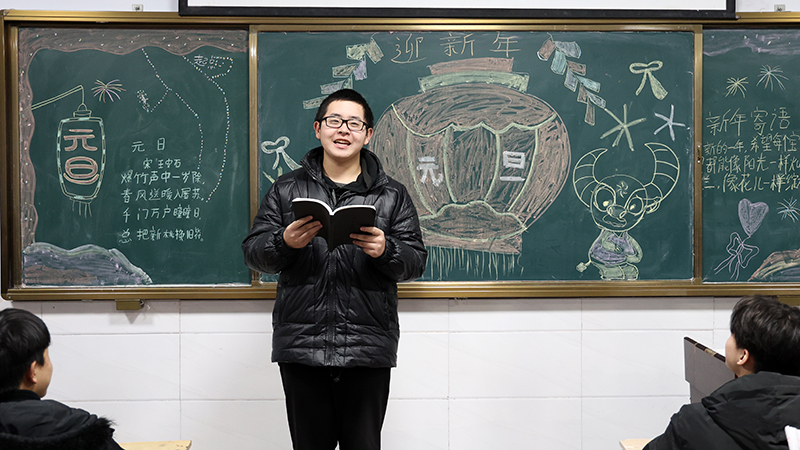 元
旦
元日
宋 王安石
爆竹声中一岁除
春风送暖入屠苏
千门万户曈曈日
总把新桃换旧符
迎新年
元 旦
新年寄语
新的一年,希望
都能像阳光一样灿
烂,像花儿一样绽